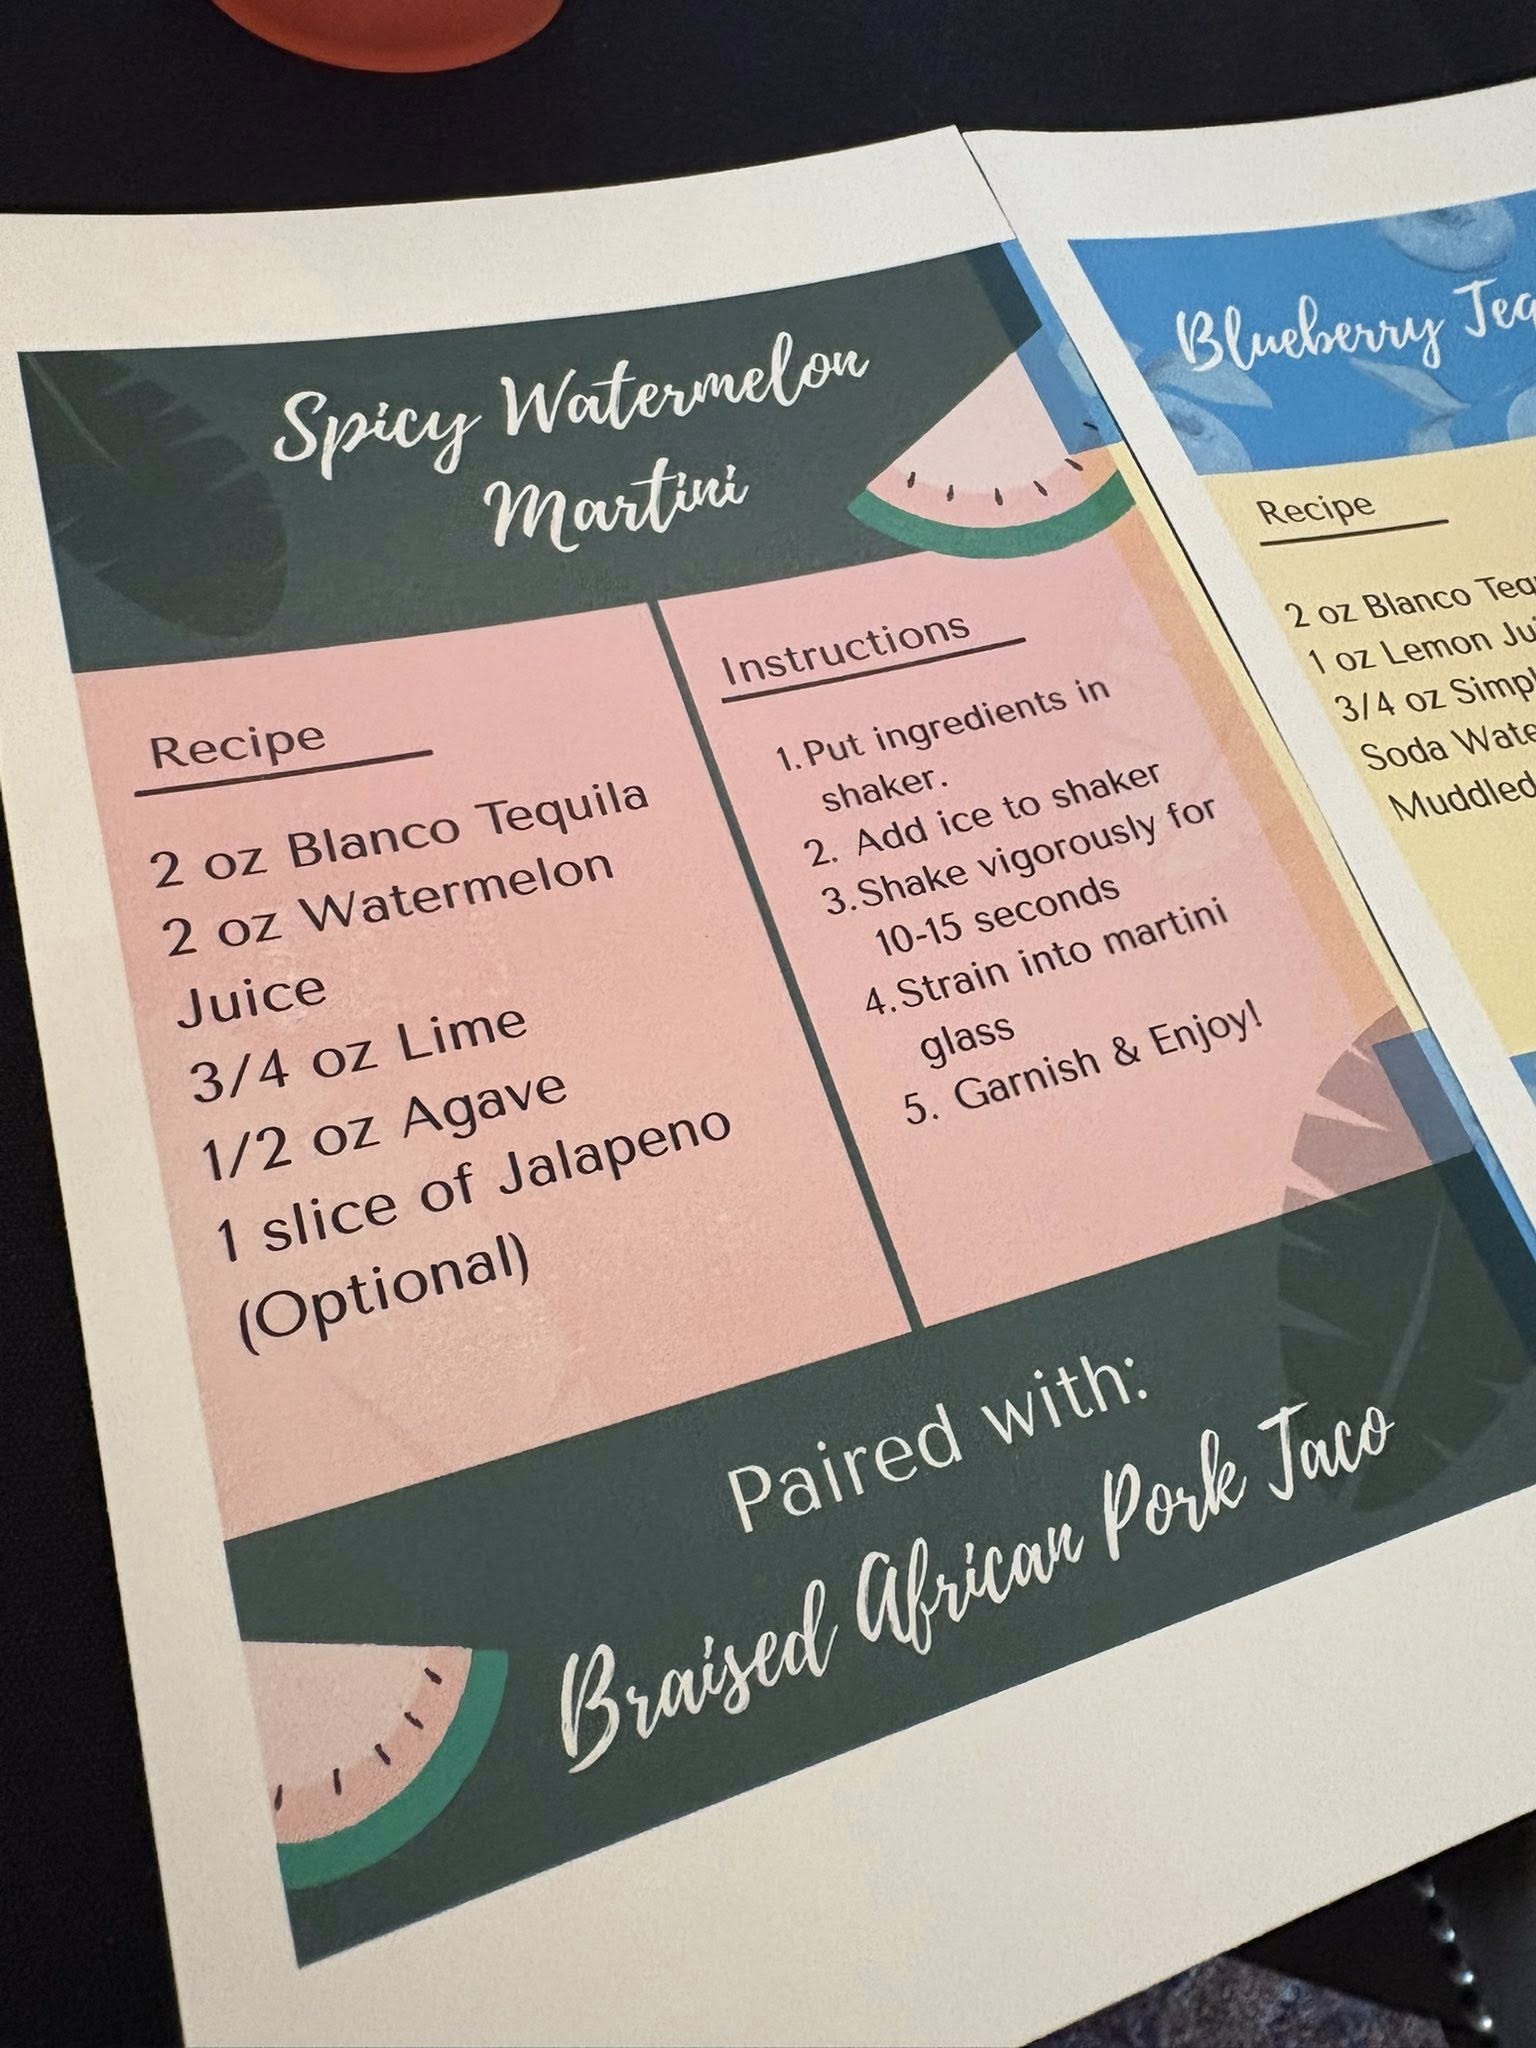 Spicy Watermelon
Martini
Recipe
2 oz Blanco Tequila
2 oz Watermelon
Juice
3/4 oz Lime
1/2 oz Agave
1 slice of Jalapeno
(Optional)
Instructions
1.Put ingredients in
shaker.
2. Add ice to shaker
3.Shake vigorously for
10-15 seconds
4.Strain into martini
glass
5. Garnish & Enjoy!
Paired with:
Braised African Pork Taco
Blueberry
Recipe
2 oz Blanco
1 oz Lemon
3/4 oz
Soda
Muddled